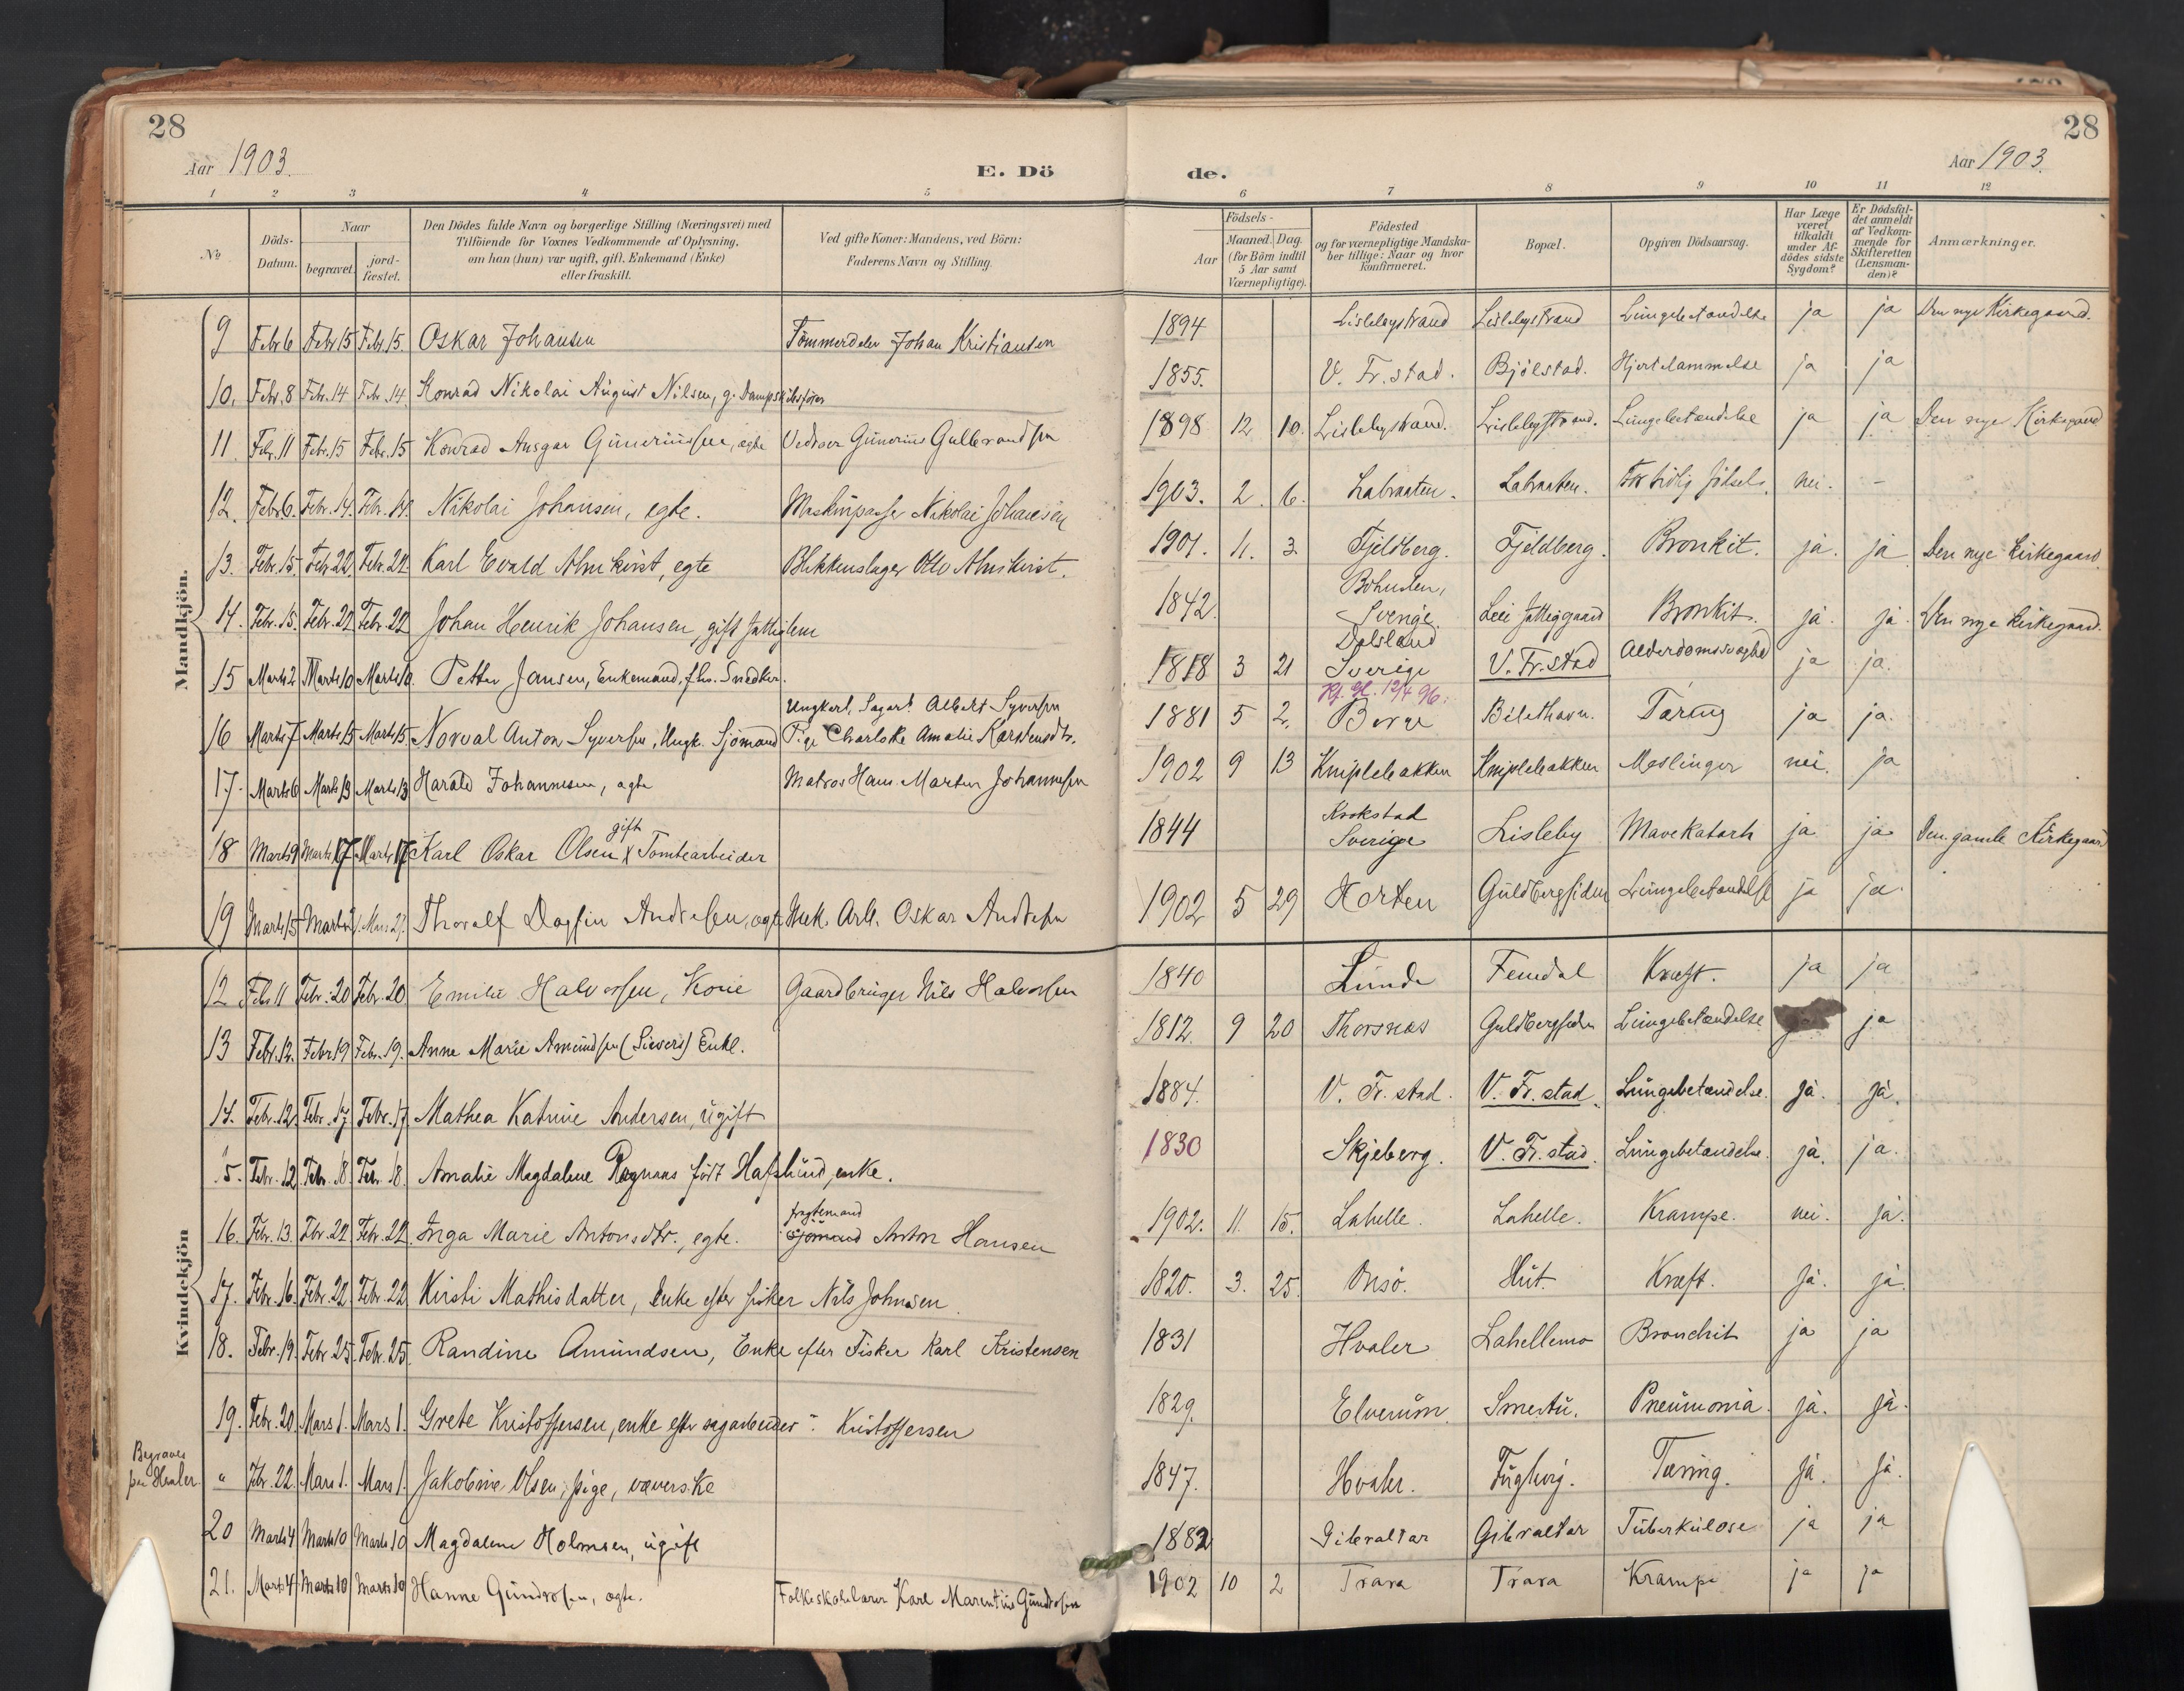 28
Aar 1903.
E. Dö
1 2 3 4 5
№
Döds-Datum.
Naar
begravet.
jord-fæstet.
Den Dödes fulde Navn og borgerlige Stilling (Næringsvei) med
Tilföiende for Voxnes Vedkommende af Oplysning,
om han (hun) var ugift, gift, Enkemand (Enke)
eller fraskilt.
Ved gifte Koner: Mandens, ved Börn:
Faderens Navn og Stilling.
28
Aar 1903.
de.
6 7 8 9 10 11 12
Födsels-
Aar
Maaned. Dag.
(for Börn indtil
5 Aar samt
Værnepligtige).
Födested
og for værnepligtige Mandska-
ber tillige: Naar og hvor
konfirmeret.
Bopæl.
Opgiven Dödsaarsag.
Har Læge
været
tilkaldt
under Af-
dödes sidste
Sygdom?
Er Dödsfal-
det anmeldt
af Vedkom-
mende for
Skifteretten
(Lensman-
den)?
Anmærkninger.
Mandkjön.
9 Febr 6 Febr 15 Febr. 15. Oskar Johansen Tömmerdeler Johan Kristiansen 1894 Lislebystrand Lislebystrand Lungebetændelse ja ja Den nye Kirkegaard.
10. Febr. 8 Febr. 14 Febr. 14 Konrad Nikolai August Nilsen, g. Dampskibsförer 1855. V. Fr.stad. Bjölstad. Hjertelammelse ja ja
11. Febr. 11 Febr. 15 Febr. 15 Konrad Ansgar Guneriussen, ægte Gunerius Gulbrandsen 1898 12 10. Lislebystrand. Lislebystrand. Lungebetændelse ja ja Den nye Kirkegaard
12. Febr 6. Febr. 14. Febr. 14. Nikolai Johansen, egte. Maskinpasser Nikolai Johansen 1903. 2. 6. Labraaten. Labraaten. For tidlig födsel. nei. -
13. Febr. 15. Feb 22 Febr. 22. Karl Evald Almkvist, egte Blikkenslager Otto Almkvist. 1901. 11. 3 Fjeldberg. Fjeldberg. Bronkit. ja. ja Den nye kirkegaard
14. Febr. 15. Febr. 22 Febr. 22 Johan Henrik Johansen, gift fattiglem 1842. Bohuslen, Sverige Leie fattiggaard Bronkit. ja. ja. Den nye kirkegaard.
15 Marts 2 Marts 10 Marts 10. Petter Jansen, Enkemand, fhv. Snedker. 1818 3 21 Dalsland Sverige V. Fr. stad Alderdomssvaghed ja ja.
16 Marts 7 Marts 15 Marts 15. Norval Anton Syversen, Ungk. Sjömand Ungkarl, Sagarb. Albert Syversen
Pige Charlotte Amalie Karstensdtr. 1881 5 2. 12/4 96. Borge Tæring ja ja.
17. Marts 6 Marts 13 Marts 13 Harald Johannesen, ægte Matros Hans Martin Johannesen 1902 9 13 Kniplebakken Kniplebakken Meslinger nei. ja
18 Marts 9 Marts 17 Marts 17 Karl Oskar Olsen gift Tomtearbeider 1844 Krokstad Sverige Lisleby Mavekatarh ja ja Den gamle Kirkegaard
19 Marts 15 Thoralf Dagfin Andresen, ægte Mek. Arb. Oskar Andresen 1902 5 29 Horten Guldbergsiden Lungebetændelse ja ja.
Kvindekjön
12 Febr 11 Febr. 20 Febr. 20 Emilie Halvorsen, Kone Gaardbruger Nils Halvorsen 1840 Lunde Femdal Kræft. ja ja
13 Febr. 12. Febr 19 Febr. 19. Anne Marie Amundsen (Sievers) Enke. 1812. 9 20 Thorsnæs Guldbergsiden Lungebetændelse ja
14. Febr. 12. Febr. 17 Febr. 17. Mathea Katrine Andersen, ugift 1884. V. Fr. stad. V. Fr. stad. Lungebetændelse. ja. ja.
15. Febr. 12 Febr. 18. Febr 18. Amalie Magdalene Rognaas födt Hafslund, enke. 1830 Skjeberg. V. Fr. stad. Lungebetændelse. ja. ja.
16. Febr. 13. Febr. 22 Febr. 22. Inga Marie Antonsdtr., egte. fragtemand
Sjömand Anton Hansen 1902. 11. 15. Lahelle. Lahelle. Krampe. nei. ja.
17. Febr. 16. Febr. 22 Febr. 22 Kirsti Mathisdatter, enke efter fisker Nils Johnsen. 1820. 3. 25. Onsö. Hut. Kræft. ja. ja.
18. Febr. 19. Febr 25. Febr. 25. Randine Amundsen, Enke efter Fisker Karl Kristensen 1831 Hvaler Lahellemo Bronchit ja ja
19. Febr. 20. Mars 1. Mars 1. Grete Kristoffersen, enke eftr sagarbeider - Kristoffersen 1829. Elverum. Smertu. Pneumonia. ja. ja.
Begraves
paa Hvaler.
" Febr. 22. Mars 1. Mars 1. Jakobine Olsen, pige, væverske 1847. Hvaler. Fuglevig. Tæring. ja. ja.
20 Marts 4 Marts 10 Marts 10 Magdalene Holmsen, ugift 1882 Gibraltar Gibraltar Tuberkulose ja ja
21. Marts 4 Marts 10 Marts 10 Hanne Gundersen, ægte. Folkeskolelærer Karl Marentius Gundersen 1902 10 2 Trara Trara Krampe ja ja